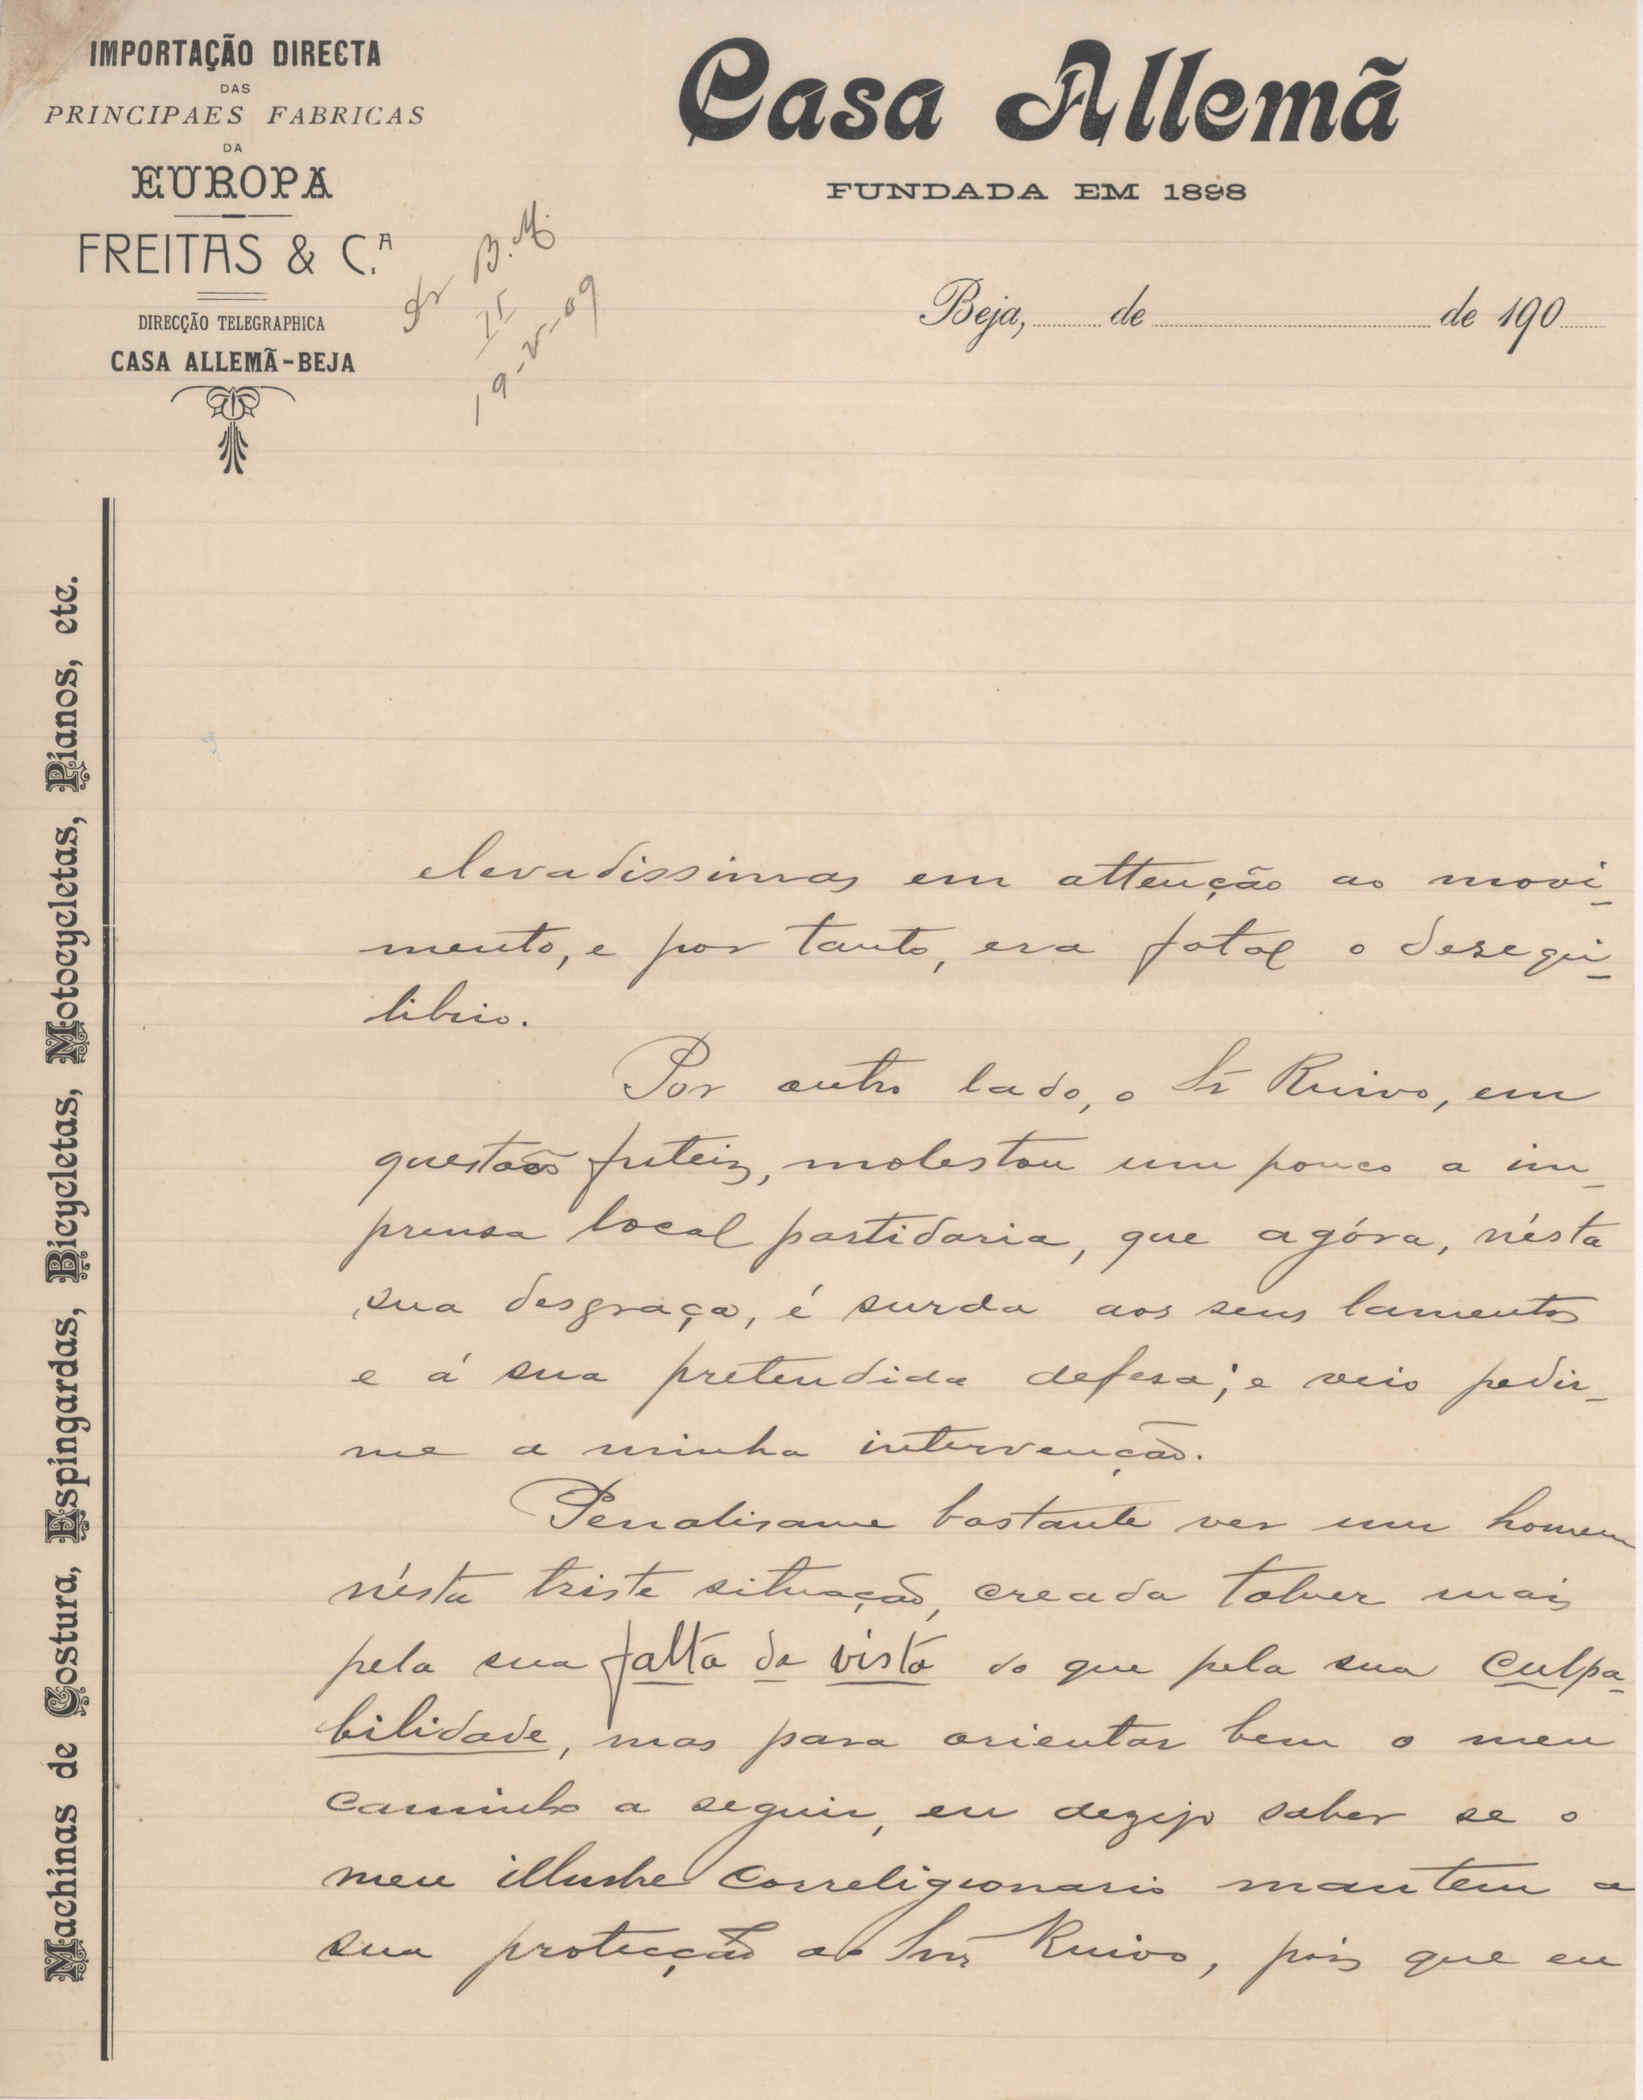 IMPORTAÇÃO DIRECTA
DAS
PRINCIPAES FABRICAS
DA
EUROPA
FREITAS & C.A
DIRECÇÃO TELEGRAPHICA
CASA ALLEMÃ-BEJA
Casa Allemã
FUNDADA EM 1898
Beja, de de 190
B. M.
19-5-09
Machinas de Costura, Espingardas, Bicycletas, Motocycletas, Pianos, etc.
elevadissimas em attenção ao movi-
mento, e por tanto, era fatal o desequi-
librio.
Por outro lado, o Sr Ruivo, em
questões futeis, molestou um pouco a im-
prensa local partidaria, que agóra, nésta
sua desgraça, é surda aos seus lamentos
e á sua pretendida defesa; e veio pedir-
me a minha intervenção.
Penalisame bastante ver um homem
nésta triste situação, creada talvez mais
pela sua falta de vista do que pela sua culpa-
bilidade, mas para orientar bem o meu
caminho a seguir, eu dezejo saber se o
meu illustre correligionario mantem a
sua protecção ao Snr Ruivo, pois que eu